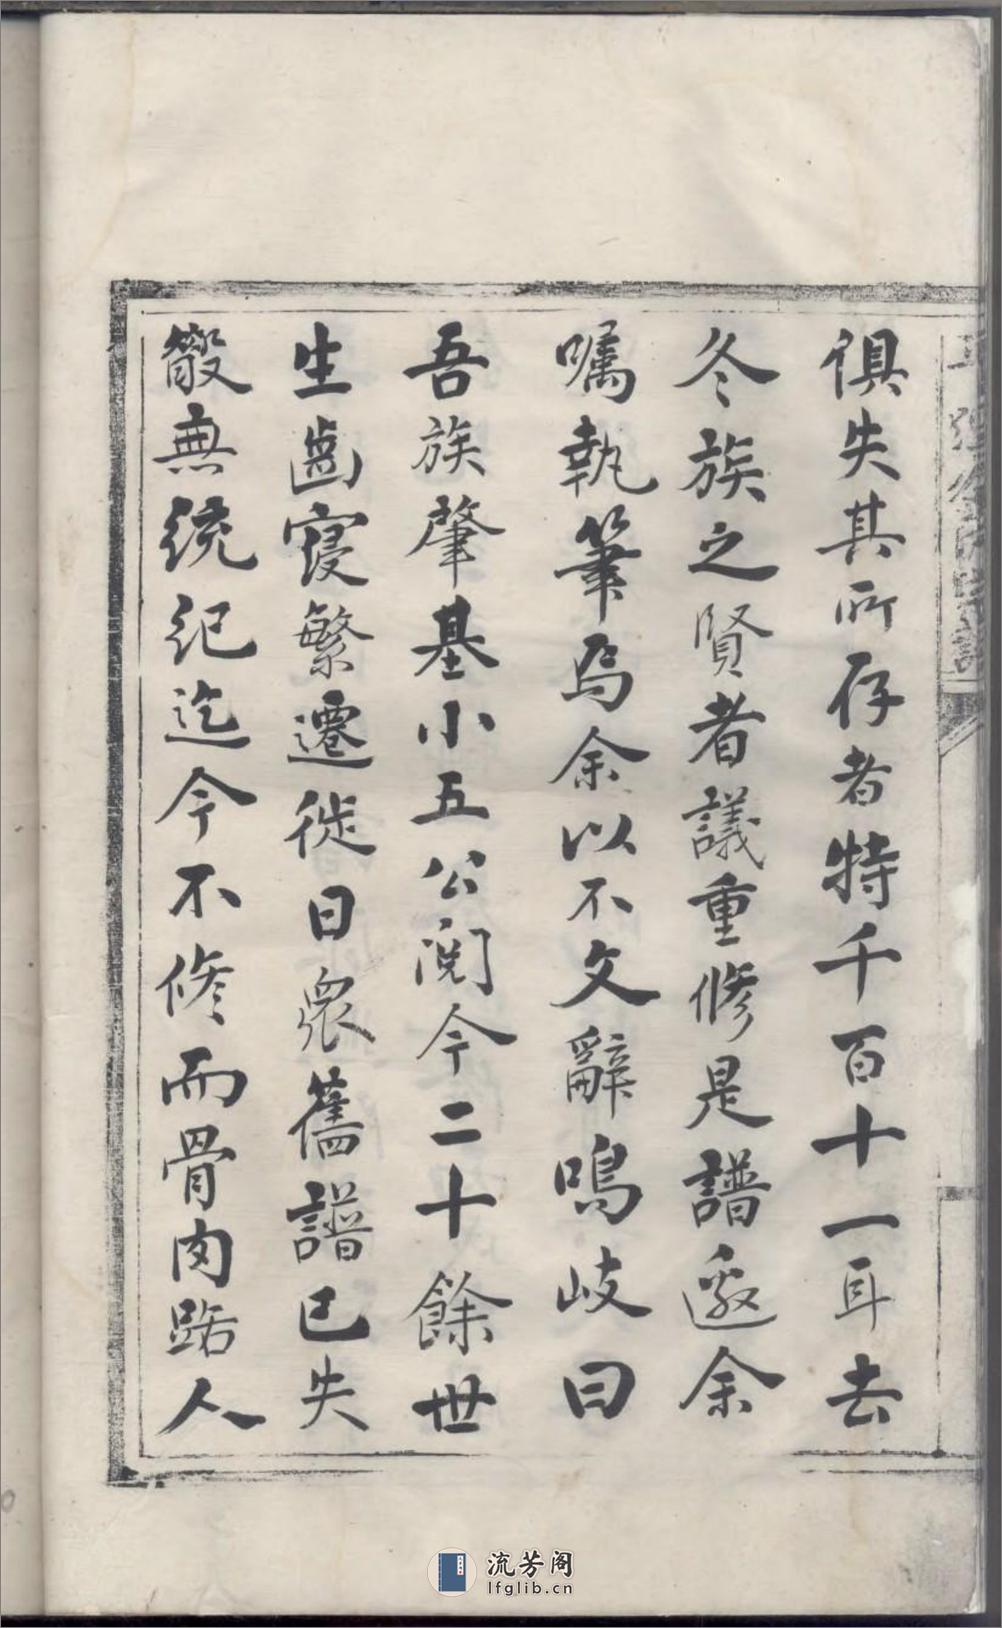 俱失其所存者特千百十一耳去
冬族之賢者議重修是譜邀余
囑執筆焉余以不文辭鳴岐曰
吾族肇基小五公閱今二十餘世
生齒寖繁遷徙日衆舊譜已失
散無統紀迄今不修而骨肉路人
流芳阁
lfglib.cn